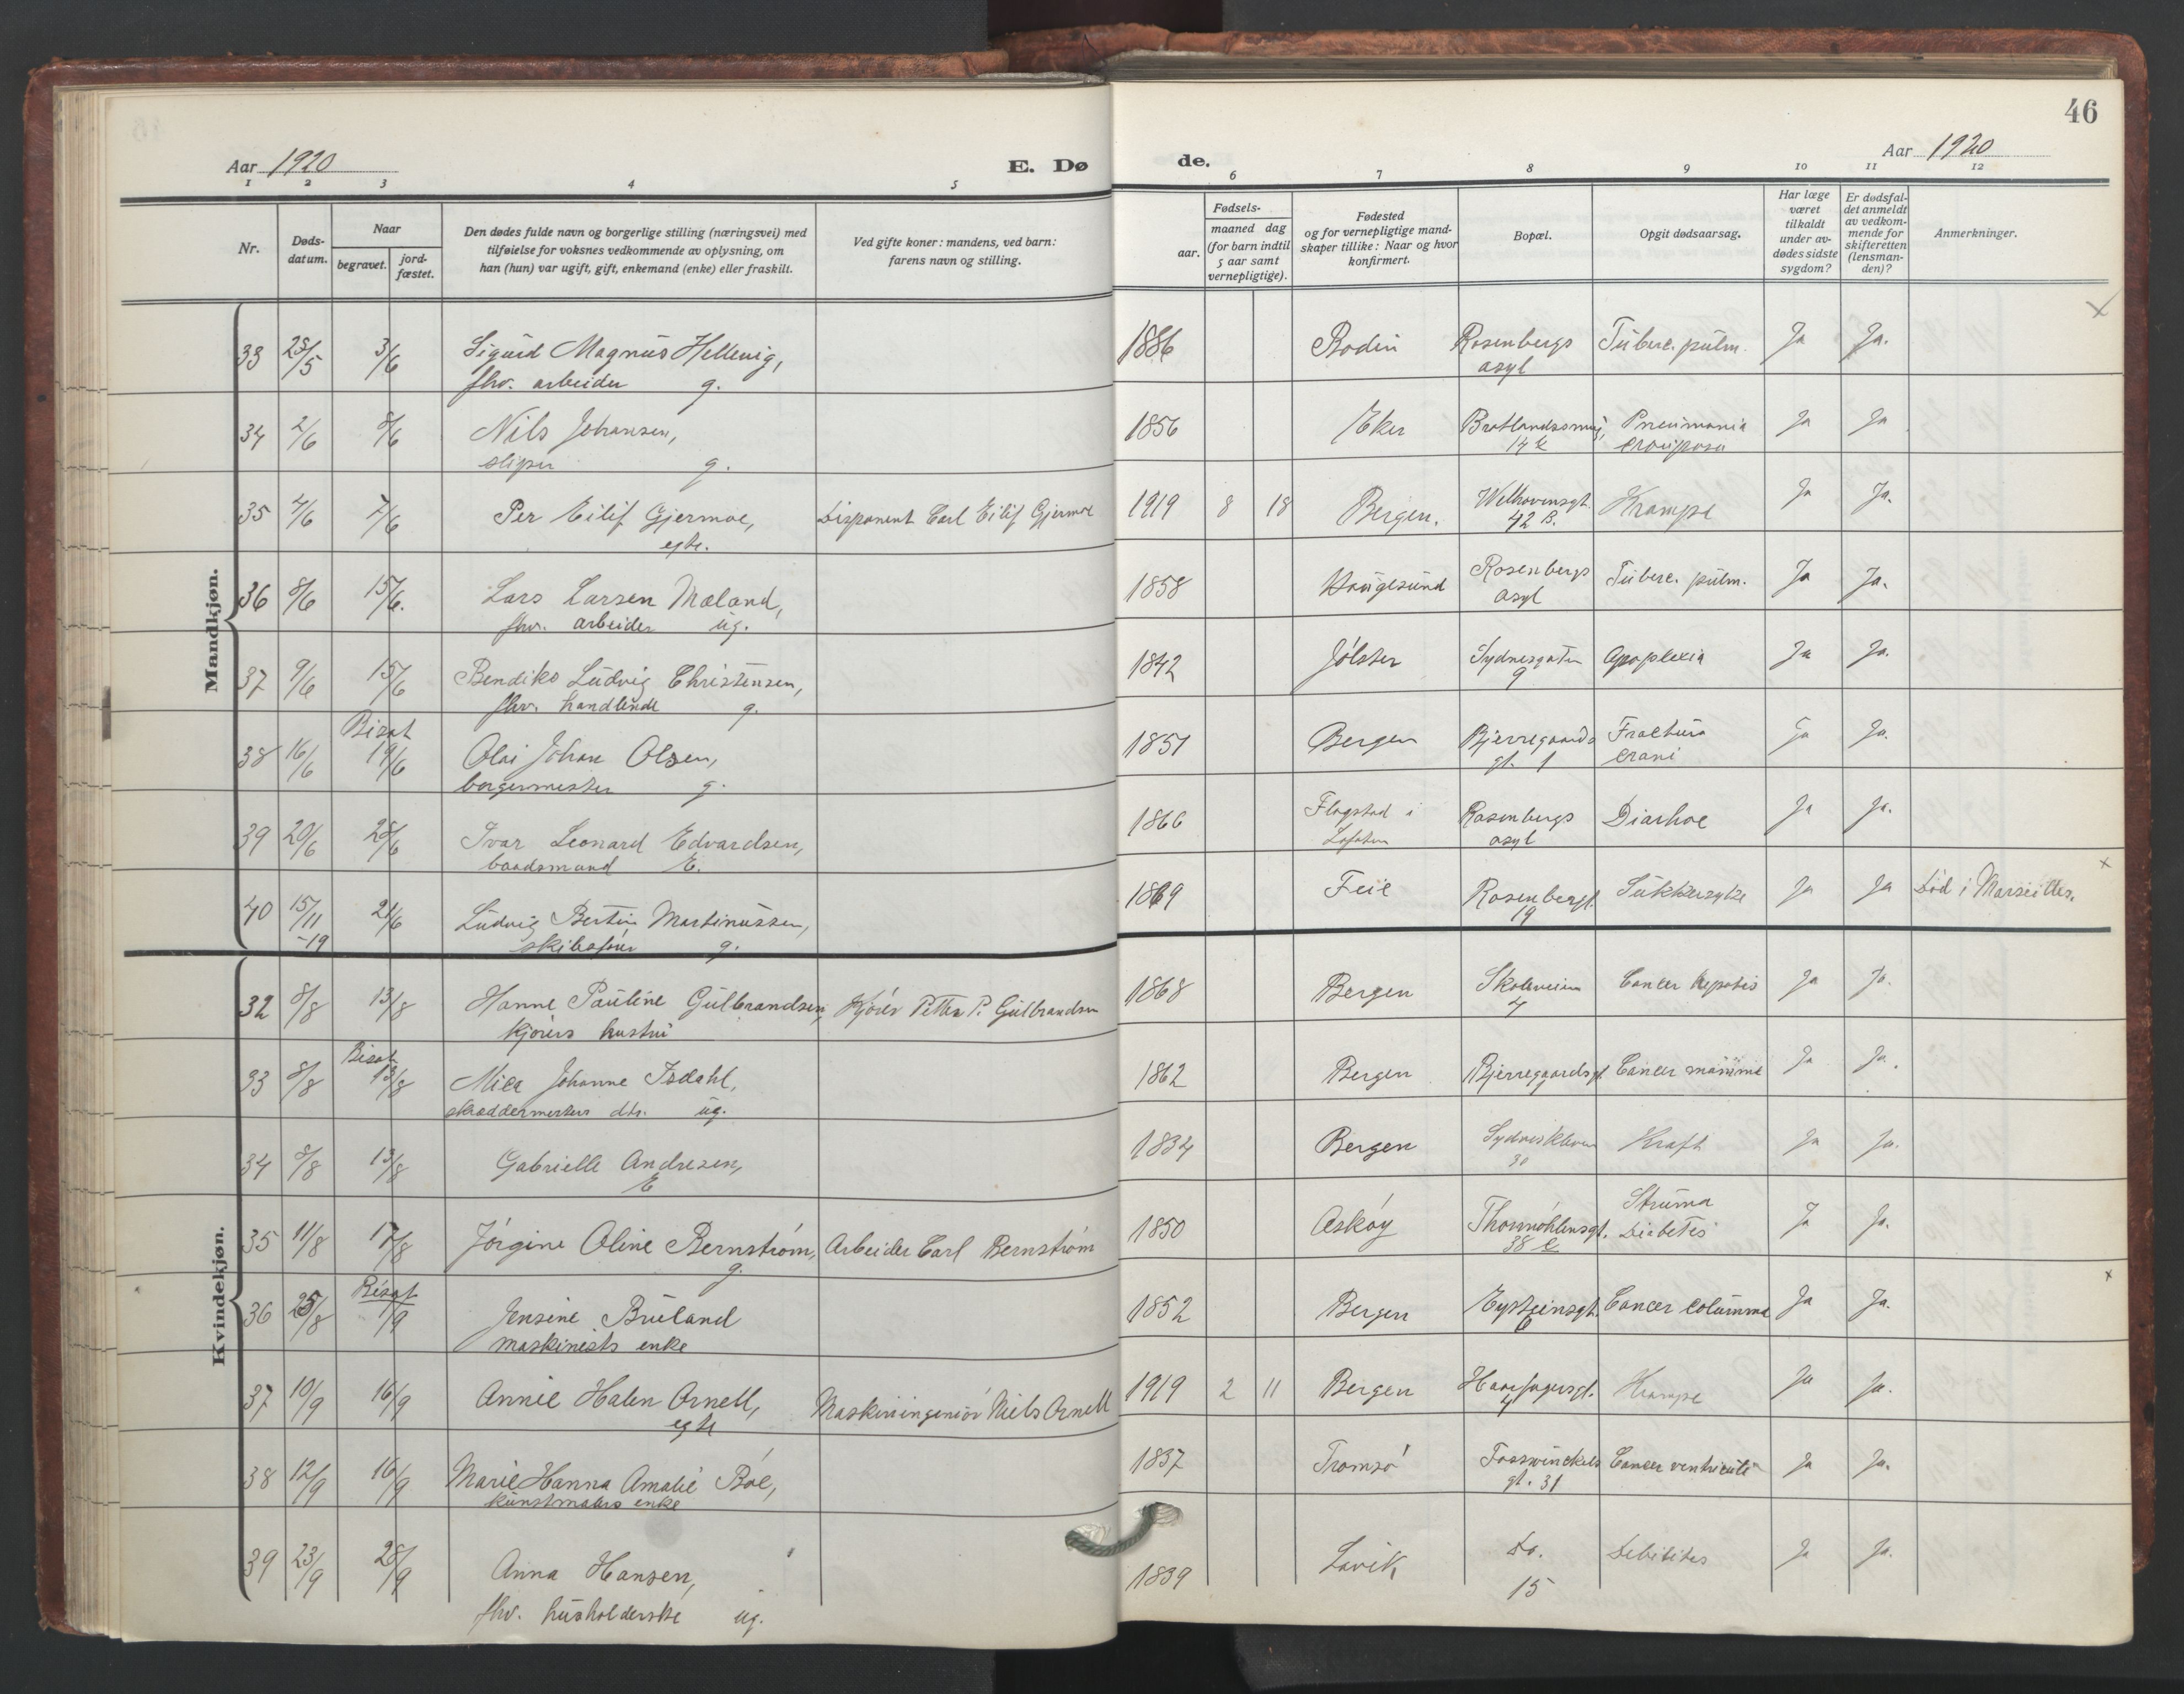 46
Aar 1920
E. Dø de.
Aar 1920
1 2 3 4 5 6 7 8 9 10 11 12
Nr.
Døds-datum.
Naar
begravet.
jord-fæstet.
Den dødes fulde navn og borgerlige stilling (næringsvei) med
tilføielse for voksnes vedkommende av oplysning, om
han (hun) var ugift, gift, enkemand (enke) eller fraskilt.
Ved gifte koner: mandens, ved barn:
farens navn og stilling.
Fødsels-
aar.
maaned dag
(for barn indtil
5 aar samt
vernepligtige).
Fødested
og for vernepligtige mand-
skaper tillike: Naar og hvor
konfirmert.
Bopæl.
Opgit dødsaarsag.
Har læge
været
tilkaldt
under av-
dødes sidste
sygdom?
Er dødsfal-
det anmeldt
av vedkom-
mende for
skifteretten
(lensman-
den)?
Anmerkninger.
Mandkjøn.
33 25/5 3/6 Sigurd Magnus Hellevig, 1886 Bodin Rosenbergs Tuberc. pulm. Ja Ja.
fhv. arbeider g. asyl
34 2/6 8/6 Nils Johansen, 1856 Eker Pneumonia Ja Ja
sliper g. crouposa
35 4/6 7/6 Per Eilif Gjermoe, Disponent Carl Eilif Gjermoe 1919 8 18 Bergen. Welhavensgt. Krampe Ja Ja.
egte. 42 B.
36 8/6 15/6. Lars Larsen Mæland, 1858 Haugesund Rosenbergs Tuberc. pulm. Ja Ja.
fhv. arbeider ug. asyl
37 9/6 15/6 Bendiks Ludvig Christensen, 1842 Jølster Sydnesgaten Apoplexia Ja Ja.
fhv. handlende g. 9
Bisat
38 16/6 19/6 Olai Johan Olsen, 1851 Bergen Bjerregaards Fractura Ja Ja.
borgermester g. gt. 1 crani
39 20/6 28/6 Ivar Leonard Edvardsen, 1866 Flagstad i Rosenbergs Diarhoe Ja Ja.
baadsmand E. Lofoten asyl
40 15/11 21/6 Ludvig Bertin Martinussen, 1869 Feie Rosenbergt. Sukkersyke Ja Ja Død i Marseilles.
-19 g. 19
Kvindekjøn.
32 8/8 13/8 Hanne Pauline Gulbrandsen, Kjører Petter P. Gulbrandsen 1868 Bergen Skoleveien Cancer hepatis Ja Ja.
kjørers hustru 4
Bisat
33 8/8 13/8 Mica Johanne Isdahl, 1862 Bergen Bjerregaardsgt. Cancer mamma Ja Ja.
skræddermesters dtr. ug.
34 8/8 13/8 Gabrielle Andresen, 1834 Bergen Sydneskleven Kraft Ja Ja.
E 30
35 11/8 17/8 Jørgine Oline Bernstrøm, Arbeider Carl Bernstrøm 1850 Askøy Thormøhlensgt. Struma Ja Ja.
g. 38 c Diabetes
Bisat
36 25/8 1/9 Jensine Bruland 1852 Bergen Eysteinsgt. Cancer columma Ja Ja.
maskinists enke 6
37 10/9 16/9 Annie Halen Arnell, Maskiningeniør Niels Arnell 1919 2 11 Bergen Haarfagersgt. Krampe Ja Ja.
egte 4
38 12/9 16/9 Marie Hanna Amalie Bøe, 1837 Tromsø Fosswinckels Cancer ventriculi Ja Ja.
kunstmalers enke gt. 31
39 23/9 28/9 Anna Hansen, 1839 Lavik Do. Debilitas Ja Ja.
fhv. husholderske ug. 15